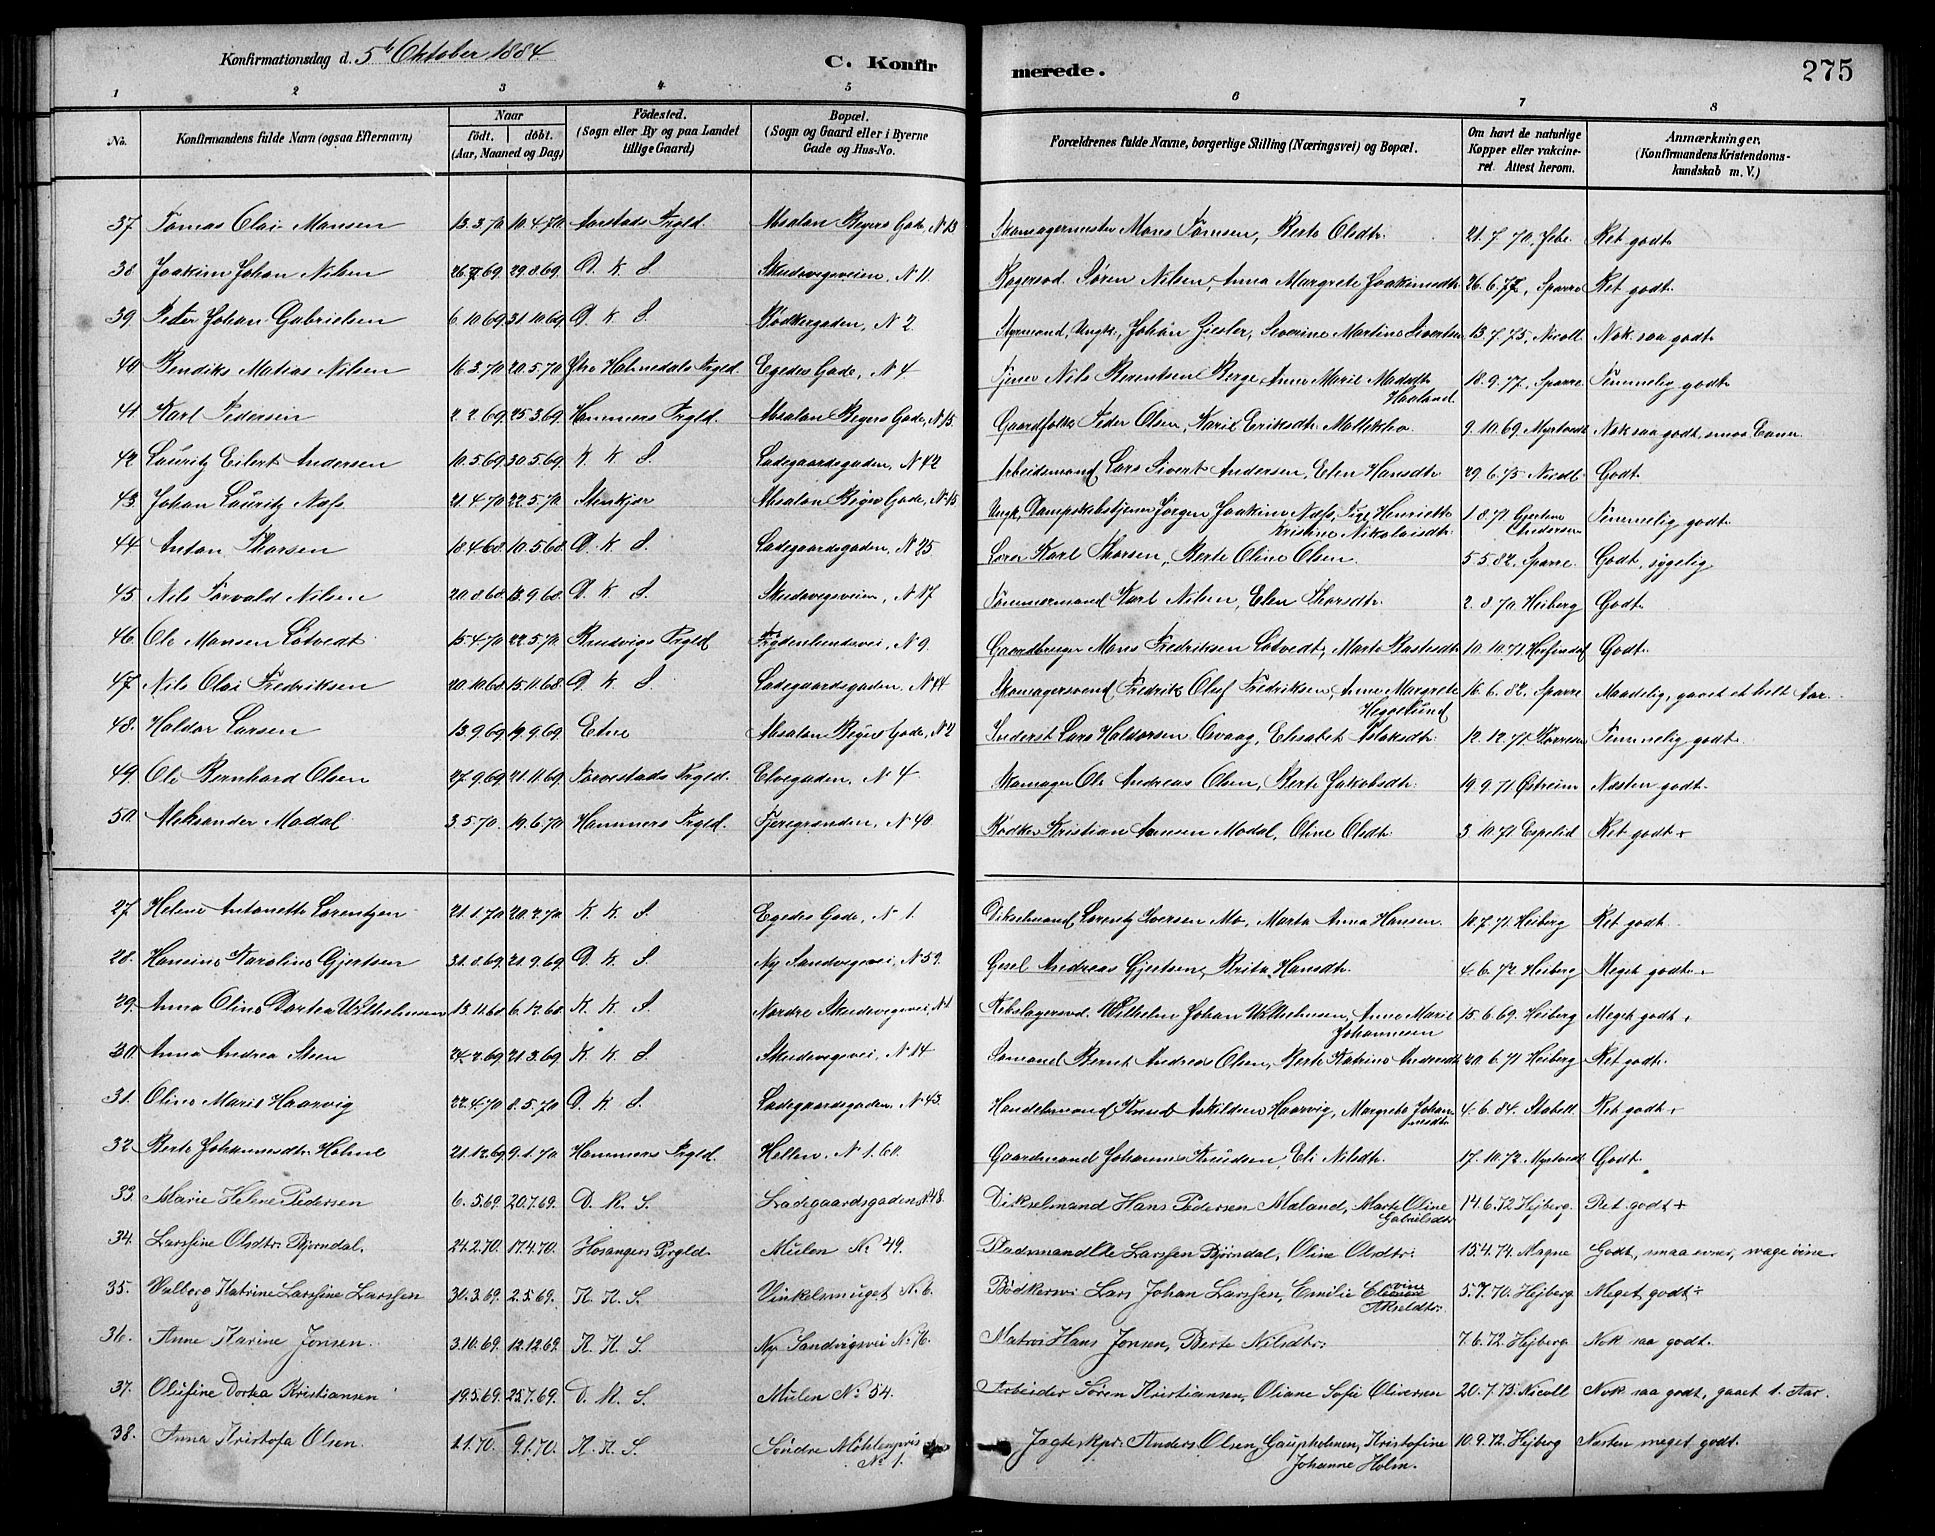 Konfirmationsdag d. 5te Oktober 1884.
C. Konfirmerede.
275
1 2 3 4 5 6 7 8
No. Konfirmandens fulde Navn (ogsaa Efternavn) Naar født. døbt. (Aar, Maaned og Dag) Födested. (Sogn eller By og paa Landet tillige Gaard) Bopæl. (Sogn og Gaard eller i Byerne Gade og Hus-No. Forældrenes fulde Navne, borgerlige Stilling (Næringsvei) og Bopæl. Om havt de naturlige Kopper eller vakcineret. Attest herom. Anmærkninger. (Konfirmandens Kristendomskundskab m. V.)
37. Tomas Olai Mansen 13.3.70 10.4.70 Aarstads Prgld. Absalon Beyers Gade, N. 13 Skomagermester Mons Tomsen, Berte Olsdtr. 21.7.70 Ret godt
38 Joakim Johan Nilsen 26.7.69 29.8.69 D. K. S. Skudevigsveien, N 11. Søren Nilsen, Anna Margrete Joakimsdtr. 26.6.77, Sparre Ret godt.
39. Peter Johan Gabrielsen 6.10.69 31.10.69 D. K. S. Bødkergaden, N 2. Styrmand, Ungk. Johan Ziesler, Severine Martine Sivertsen 13.7.75, Nicoll Nok saa godt
40 Bendiks Matias Nilsen 16.3.70 20.5.70 Ytre Holmedals Prgld. Egedes Gade, N 4. Tjener Nils Berentsen Berge, Anne Marie Madsdtr. Haaland 18.9.77, Sparre Temmelig godt
41. Karl Pedersen 2.2.69 25.3.69 Hammers Prgld. Absalon Beyers Gade, N 15. Gaardfolk Peder Olsen, Kari Eriksdtr. 9.10.69 Myrtvedt Nok saa godt, smaa Evner
42 Lauritz Eilert Andersen 10.5.69 30.5.69 K. K. S. Ladegaardsgaden, N 42 Arbeidsmand Lars Sivert Andersen, Elen Hansdtr 29.6.75 Nicoll Godt.
43. Johan Lauritz Næss 21.4.70 22.5.70 Stenkjær Absalon Beyers Gade, N. 15 Ungk. Dampskibstjener Jørgen Joakim Næss, Pige Henriette Kristine Nikolaisdtr. 1.8.71 Gjertine Andersen Temmelig godt.
44 Anton Thorsen 18.4.68 10.5.68 D. K. S. Ladegaardsgaden, N 25 Karl Thorsen, Berte Oline Olsen. 5.5.82. Sparre. Godt, sygelig
45. Nils Torvald Nilsen 20.8.68 13.9.68 D. K. S. Skudevigsveien, N 17. Tømmermand Karl Nilsen, Elen Thorsdtr. 2.8.70 Heiberg Godt
46. Ole Monsen Løtvedt 15.4.70 22.5.70 Bruvigs Prgld Frydenlundsvei, N 9. Gaardbruger Mons Fredriksen Løtvedt, Marte Bastesdtr 10.10.71 Godt.
47. Nils Olai Fredriksen 20.10.68 15.11.68 D. K. S. Ladegaardsgaden, N 44 Skomagersvend Fredrik Oluf Fredriksen, Anne Margrete Heggelund 16.6.82, Sparre Maadelig, gaaet et helt Aar.
48. Haldor Larsen 13.9.69 19.9.69 Etne Absalon Beyers Gade, N 2 Inderst Lars Haldorsen Osvaag, Elisabet Aslaksdtr. 12.12.71 Temmelig godt.
49. Ole Bernhard Olsen 27.9.69 21.11.69 Aarstads Prgld. Elvegaden. N 4 Skomager Ole Andreas Olsen, Berte Jakobsdtr. 19.9.71 Østreim Næsten godt.
50. Aleksander Modal 3.5.70. 19.6.70 Hammers Prgld. Fjeregranden, N 40. Bødker Kristian Hansen Modal, Oline Olsdtr. 3.10.71 Espelid Ret godt +
27. Helene Antonette Lorentzen 21.1.70 20.2.70 K. K. S. Egedes Gade, N 1. Vikselmand Lorentz Iversen Mo, Marta Anna Hansen. 10.7.71 Heiberg Ret godt.
28. Hansine Karoline Gjertsen 31.8.69 21.9.69 D. K. S. Ny Sandvigsvei, N 59. Andreas Gjertsen, Brita Hansdtr. 4.6.72 Heiberg Meget godt.
29. Anna Oline Dortea Wilhelmsen 13.11.68 6.12.68 K. K. S. Nordre Skudevigsvei, N 1 Rebslagersvd. Wilhelm Johan Wilhelmsen, Anne Marie Johannesen 15.6.69. Heiberg Meget godt.
30. Anna Andrea Steen 24.2.69 21.3.69 K. K. S. Skudevigsvei. N 14 Sømand Bernt Andreas Olsen, Berte Katrine Andersdtr 20.6.71 Heiberg Ret godt.
31. Oline Marie Haarvig 22.4.70 8.5.70 D. K. S. Ladegaardsgaden, N 43. Handelsmand Knud Askildsen Haarvig, Margreta Johannesdtr 4.6.84. Stabell Ret godt +
32 Berte Johannesdtr. Holme 21.12.69 9.1.70 Hammers Prgld. Hellen, N 1.60. Gaardmand Johannes Knudsen, Eli Nilsdtr. 17.10.72 Myrtvedt Godt.
33. Marie Helene Pedersen 6.5.69. 20.7.69. D. K. S. Ladegaardsgaden N 48. Vikselmand Hans Pedersen Mæland, Marte Oline Gabrielsdtr 14.6.72 Hejberg. Ret godt +
34. Larsine Olsdtr. Bjørndal. 24.2.70. 17.4.70. Hosangers Prgld. Mulen No 49. Pladsmand Ole Larssen Bjørndal, Oline Olsdtr. 15.4.74 Magne Godt, smaa evner, svage øine.
35. Valborg Katrine Larssine Larssen 31.3.69. 2.5.69. K. K. S. Vinkelsmuget No 6. Bødkersv. Lars Johan Larssen, Emilie Elovine Akseldtr. 5.7.70. Hejberg. Meget godt ÷
36. Anne Karine Jonsen. 3.10.69. 12.12.69. K. K. S. Ny Sandvigsvei No 76. Matros Hans Jonsen, Berte Nilsdtr. 7.6.72. Hejberg. Nok saa godt.
37. Olufine Dortea Kristiansen 19.5.69. 25.7.69. D. K. S. Mulen No 54. Arbeider Søren Kristiansen, Oliane Sofie Oliversen 20.7.75. Nicoll Nok saa godt, gaaet 1. Aar.
38. Anna Kristofa Olsen. 1.1.70. 9.1.70. K. K. S. Søndre Møhlenpris No 1. Jagteskpr. Anders Olsen, Gaupholmen, Kristofine Johanne Holm. 10.9.72. Hejberg Næsten meget godt.